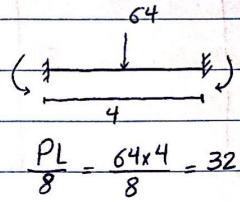 64
4
PL/8 = 64x4/8 = 32